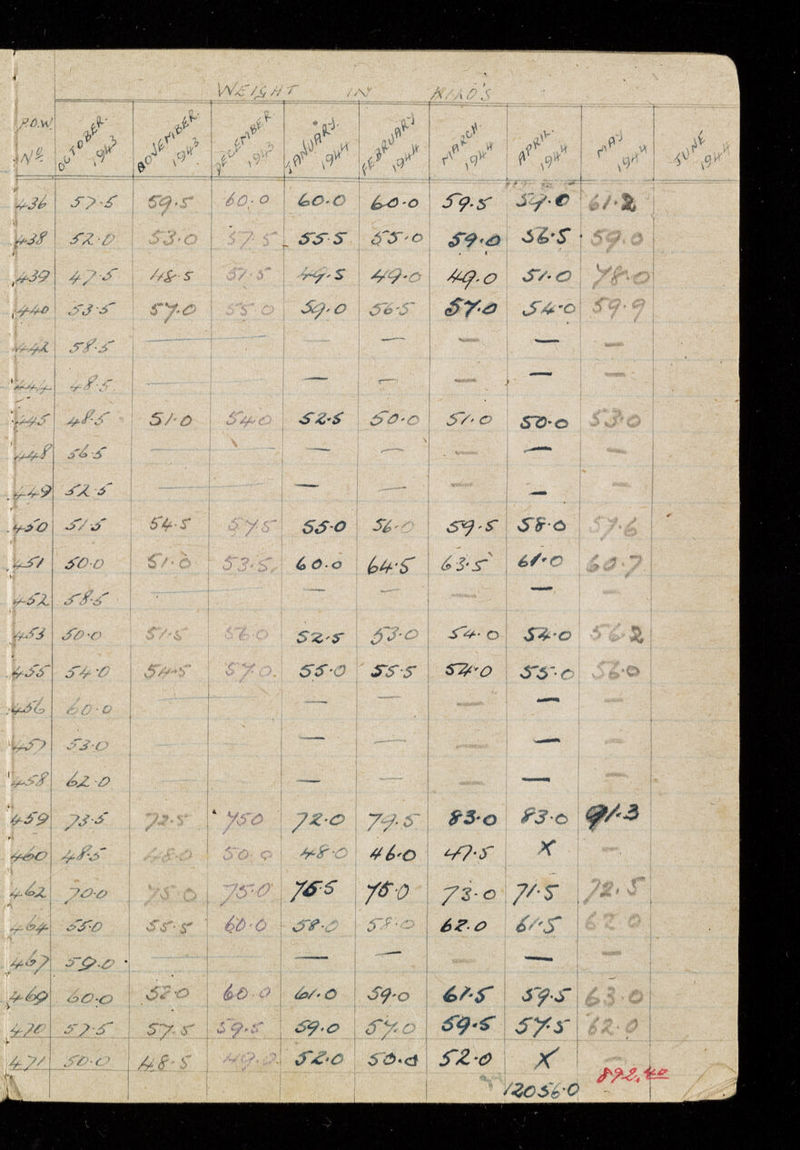 WEIGHT IN KILO'S
P.O.W. No OCTOBER. 1943 NOVEMBER. 1943 DECEMBER 1943 JANUARY. 1944 FEBRUARY 1944 MARCH. 1944 APRIL. 1944 MAY 1944 JUNE 1944
436 57.5 59.5 60.0 60.0 60.0 59.5 59.0 61.2
438 52.0 53.0 57.5 55.5 55.0 59.0 56.5 59.0
439 47.5 48.5 51.5 49.5 49.0 49.0 51.0 78.0
440 53.5 57.0 55.0 59.0 56.5 57.0 54.0 59.9
442 58.5 — — — — — — —
444 48.5 — — — — — — —
445 48.5 51.0 54.0 52.5 50.0 51.0 50.0 53.0
448 56.5 — — — — — — —
449 52.5 — — — — — — —
450 51.5 54.5 57.5 55.0 56.0 59.5 58.0 57.6
451 50.0 51.0 53.5 60.0 64.5 63.5 61.0 60.7
452 58.5 — — — — — — —
453 50.0 51.5 56.0 52.5 53.0 54.0 54.0 56.2
455 54.0 54.5 57.0 55.0 55.5 54.0 55.0 56.0
456 60.0 — — — — — — —
457 53.0 — — — — — — —
458 62.0 — — — — — — —
459 73.5 72.5 75.0 72.0 79.5 83.0 83.0 91.3
460 48.5 48.0 50.0 48.0 46.0 47.5 X —
462 70.0 75.0 75.0 75.5 75.0 73.0 71.5 72.5
464 55.0 55.5 60.0 58.0 58.0 62.0 61.5 62.0
467 59.0 — — — — — — —
469 60.0 52.0 60.0 61.0 59.0 61.5 59.5 63.0
470 57.5 57.5 59.5 59.0 57.0 59.5 57.5 62.0
471 50.0 48.5 49.0 52.0 50.0 52.0 X —
12056.0 892.40